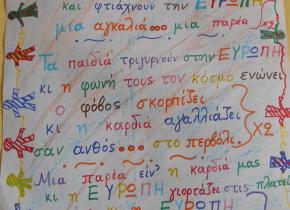 και φτιάχνουν την ΕΥΡΩΠΗ
μια αγκαλιά... μια παρέα Χ2
Τα παιδιά τριγυρνούν στην ΕΥΡΩΠΗ
κι η φωνή τους τον κόσμο ενώνει
ο φόβος σκορπίζει
κι η καρδιά αγαλλιάζει
σαν ανθός... στο περβόλι. Χ2
Μια παρέα είν' η καρδιά μας
κι η ΕΥΡΩΠΗ γιορτάζει στις πλατεί